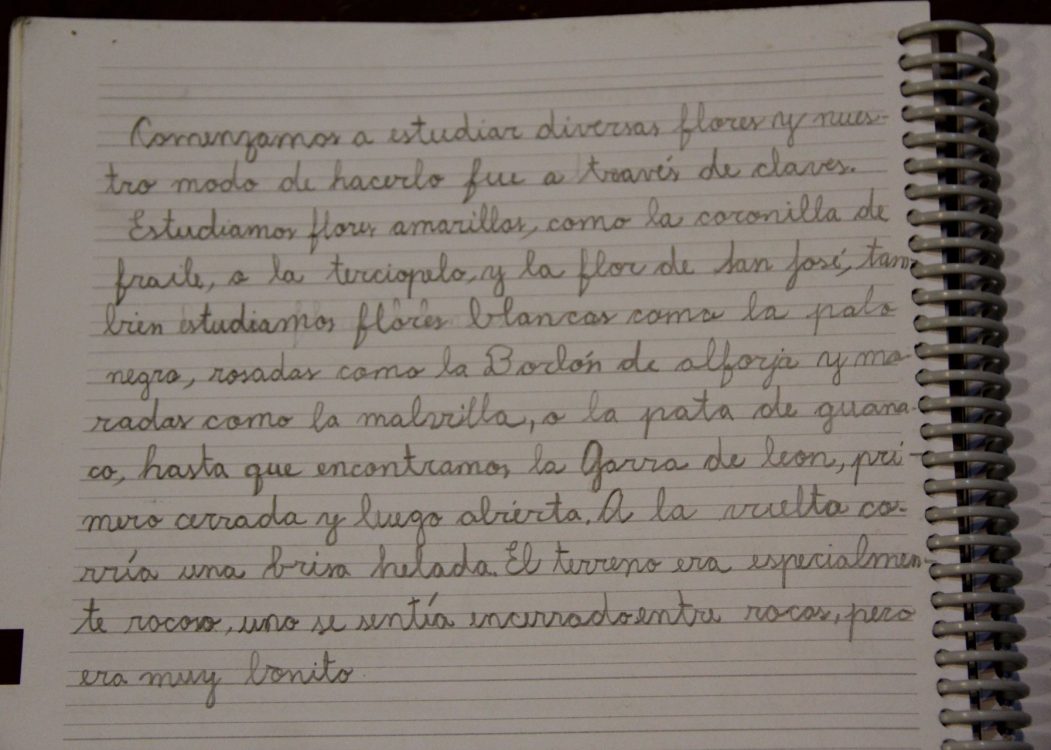 Comenzamos a estudiar diversas flores y nues-
tro modo de hacerlo fue a través de claves.
Estudiamos flores amarillas, como la coronilla de
fraile, o la terciopelo, y la flor de San José, tam-
bien estudiamos flores blancas como la palo
negro, rosadas como la Borlón de alforja y mo-
radas como la malvilla, o la pata de guana-
co, hasta que encontramos la Garra de leon, pri-
mero cerrada y luego abierta. A la vuelta co-
rría una brisa helada. El terreno era especialmen-
te rocoso, uno se sentía encerrado entre rocas, pero
era muy bonito.